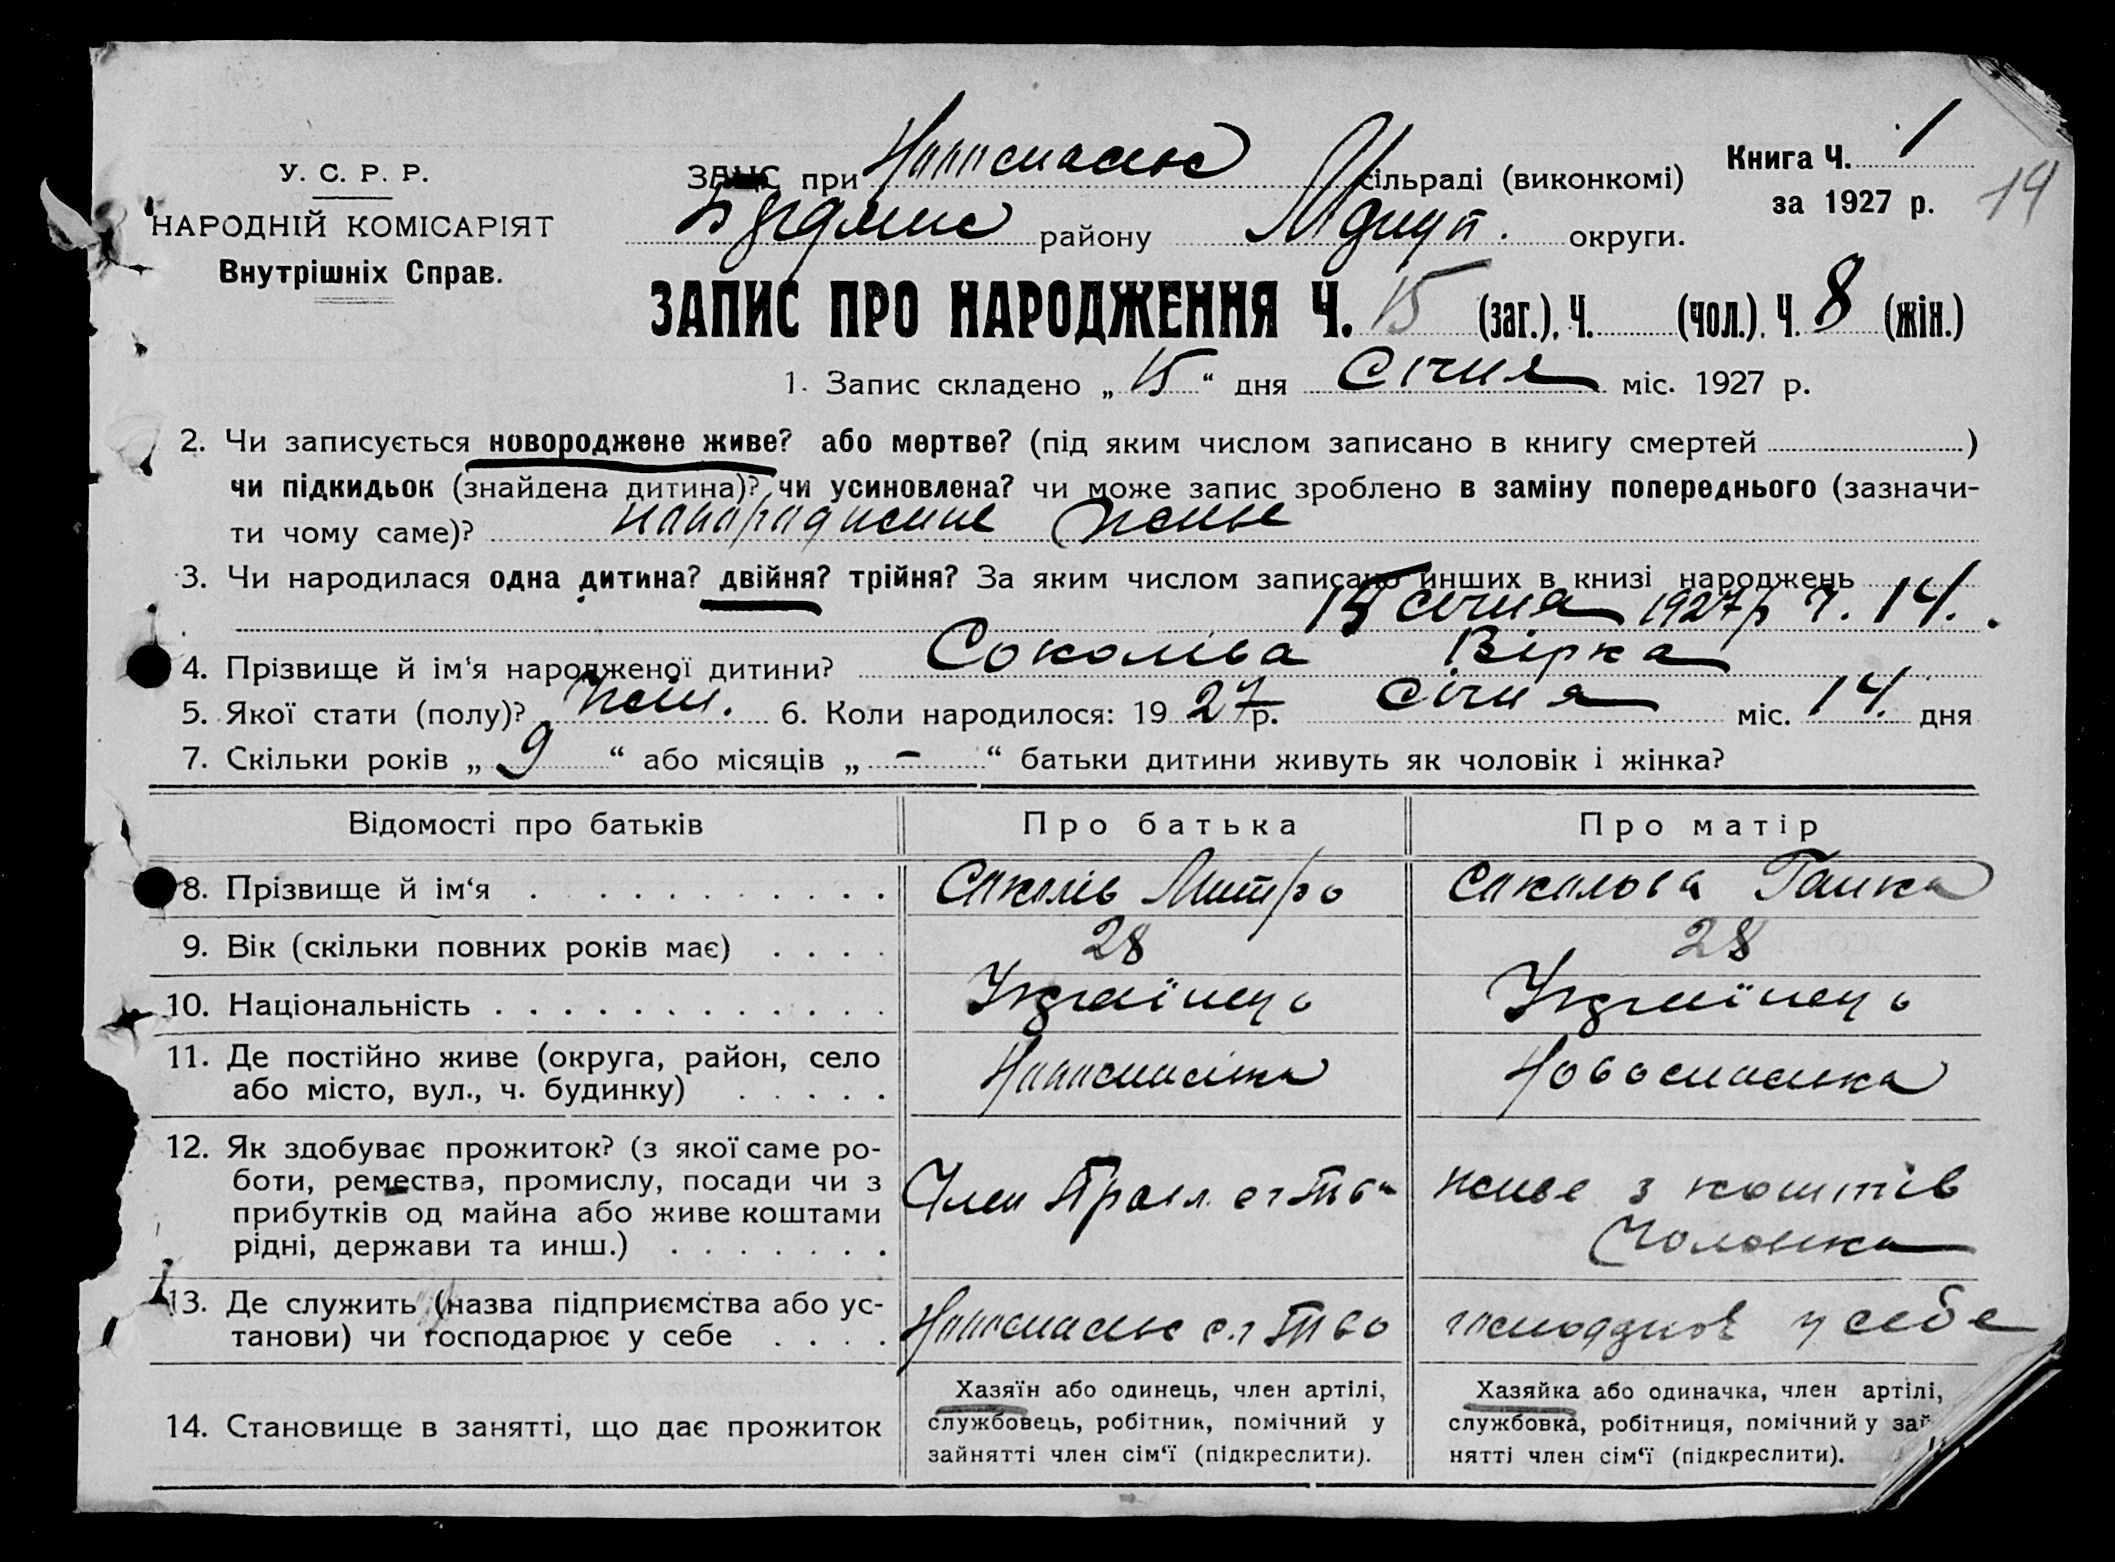 У. С. Р. Р.
НАРОДНІЙ КОМІСАРІЯТ
Внутрішніх Справ.
ЗАЦС при сільраді (виконкомі)
району округи.
Книга Ч. 1
за 1927 р.
14
ЗАПИС ПРО НАРОДЖЕННЯ Ч. 15 (заг.), Ч. (чол.), Ч. 8 (жін.)
1. Запис складено „ 15 “ дня Січня міс. 1927 р.
2. Чи записується новороджене живе? або мертве? (під яким числом записано в книгу смертей )
чи підкидьок (знайдена дитина)? чи усиновлена? чи може запис зроблено в заміну попереднього (зазначи-
ти чому саме)? живе
3. Чи народилася одна дитина? двійня? трійня? За яким числом записано инших в книзі народжень
15 січня 1927 р ч. 14.
4. Прізвище й ім'я народженої дитини? Соколіва Вірка
5. Якої стати (полу)? жін. 6. Коли народилося: 1927 р. Січня міс. 14. дня
7. Скільки років „ 9 “ або місяців „ - “ батьки дитини живуть як чоловік і жінка?
Відомості про батьків Про батька Про матір
8. Прізвище й ім‘я Соколів Митро Соколова Ганка
9. Вік (скільки повних років має) 28 28
10. Національність Українець Українець
11. Де постійно живе (округа, район, село Новоспаська Новоспаська
або місто, вул., ч. будинку)
12. Як здобуває прожиток? (з якої саме ро-
боти, ремества, промислу, посади чи з Член Правл. ст Тва живе з коштів
прибутків од майна або живе коштами
рідні, держави та инш.) Чоловіка
13. Де служить (назва підприємства або ус-
танови) чи господарює у себе с.г Тво господарює у себе
Хазяїн або одинець, член артілі,
службовець, робітник, помічний у
зайнятті член сім‘ї (підкреслити).
Хазяйка або одиначка, член артілі,
службовка, робітниця, помічний у зай
нятті член сім‘ї (підкреслити).
14. Становище в занятті, що дає прожиток